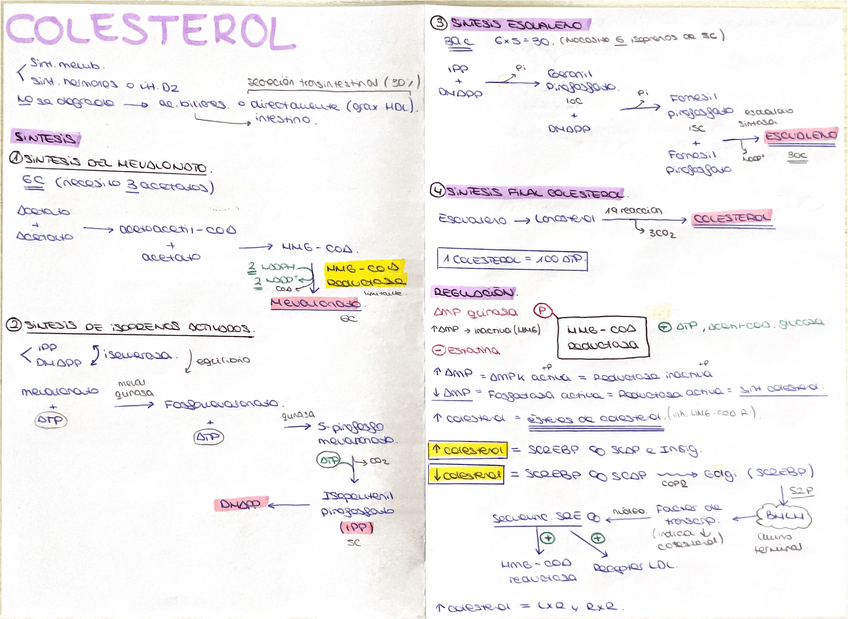 COLESTEROL
Sint. memb.
Sint. hormonas o vit. D2
secreción transintestinal (30%)
No se degrada → ac. biliares o directamente (grax HDL).
intestino.
SINTESIS
① SINTESIS DEL MEVALONATO.
6C (necesito 3 acetatos)
Acetato
+
Acetato → acetoacetil-CoA
+
acetato
→ HMG-COA.
2 NADPH
2 NADP+
COA
HMG-COA
Reductasa
limitante
Mevalonato.
6C
② SINTESIS DE ISOPRENOS ACTIVADOS.
IPP
DMAPP
isomerasa.
equilibrio
mevalonato
+
ATP
meval
quinasa
→ Fosfomevalonato.
+
ATP
quinasa
→ 5-pirofosfo
mevalonato.
ATP
CO2
Isopentenil
pirofosfato
(IPP)
5C
DMAPP
③ SINTESIS ESCUALENO
30C 6x5=30. (necesito 6 isoprenos de 5C)
IPP
+
DMAPP
Pi
Geranil
Pirofosfato.
10C
+
DMAPP
Pi
Farnesil
pirofosfato
15C
+
Farnesil
Pirofosfato
escualeno
sintasa
NADP+
ESCUALENO
30C
④ SINTESIS FINAL COLESTEROL.
Escualeno → Lanosterol 19 reacción → COLESTEROL
3CO2
1 COLESTEROL = 100 ATP.
REGULACIÓN.
AMP quinasa P
↑AMP → inactiva (HMG)
⊖ Estatina
HMG-COA
Reductasa
⊕ ATP, acetil-COA, glucosa
↑ AMP = AMPK activa +P = Reductasa inactiva +P
↓ AMP = Fosfatasa activa = Reductasa activa = sint colesterol.
↑ colesterol = ésteres de colesterol. (inh. HMG-COA R.)
↑ colesterol = SCREBP ∞ SCAP e INSIG.
↓ colesterol = SCREBP ∞ SCAP COPII Golgi (SCREBP)
S2P
BHLH
amino
terminal
Factor de
transcrip.
(indica ↓
colesterol)
núcleo
Secuenc SRE
⊕ ⊕
HMG-COA
reductasa
Receptor LDL.
↑ colesterol = LXR y RXR.